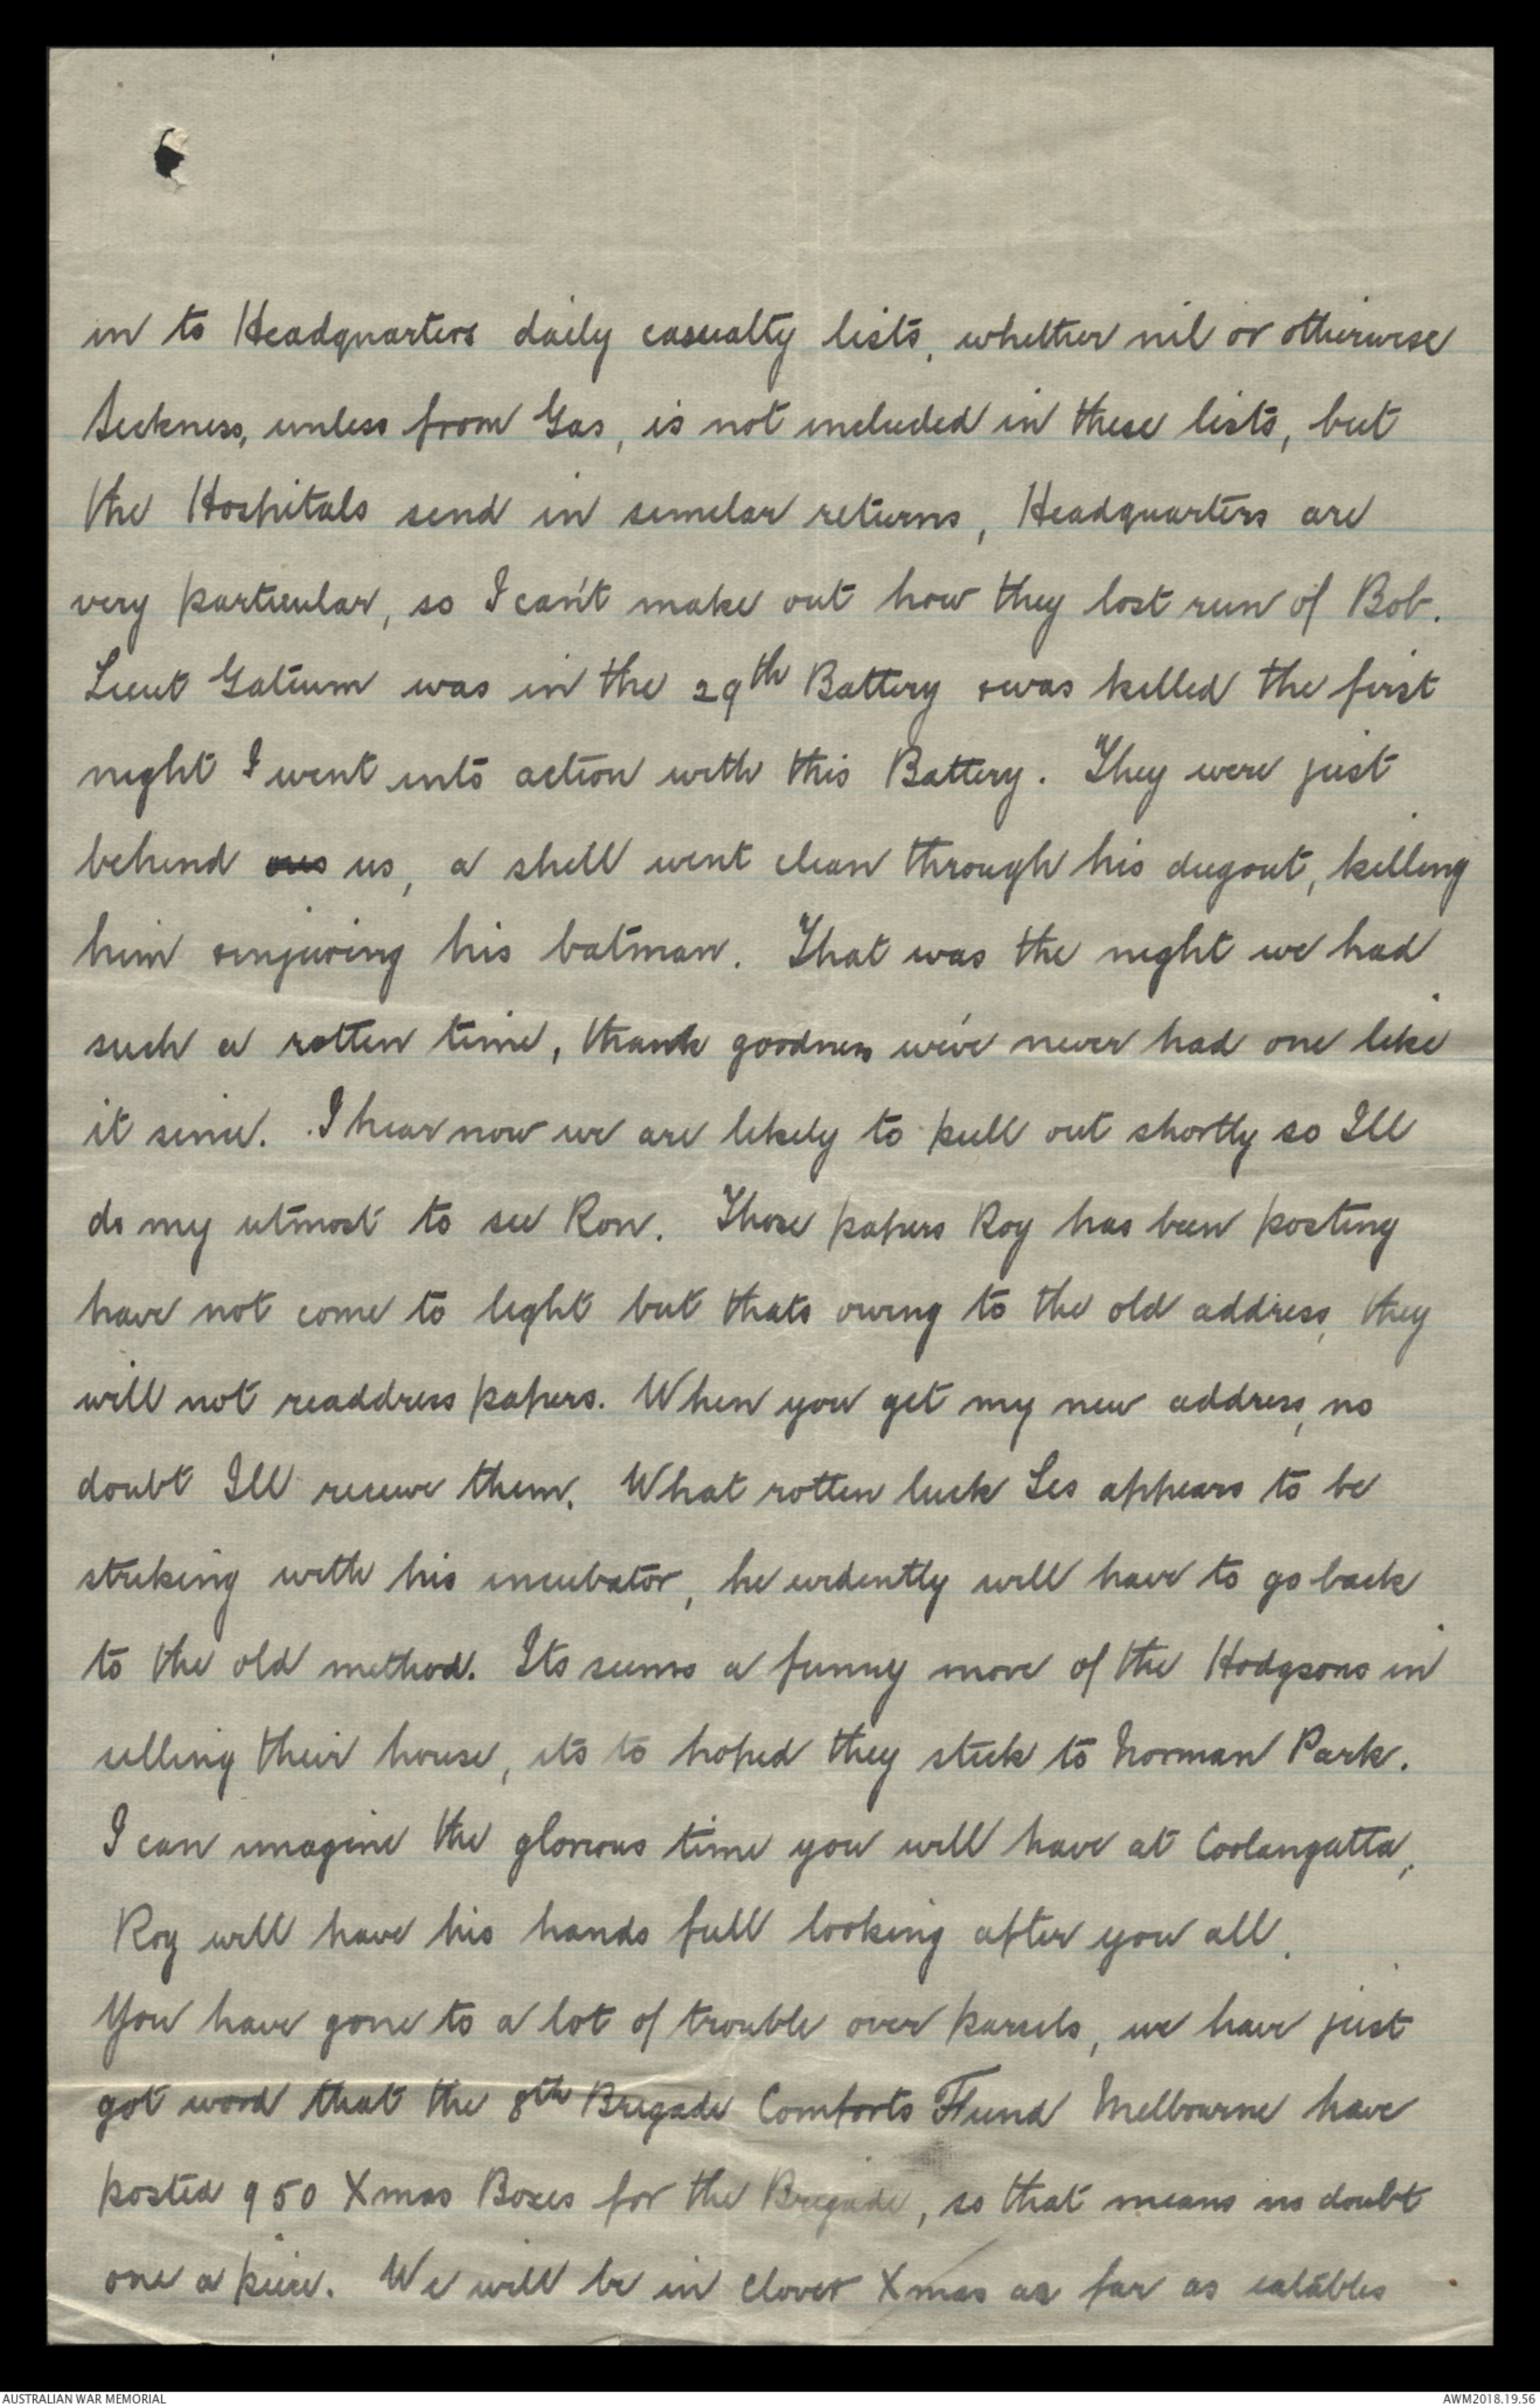 in to Headquarters daily casualty lists, whether nil or otherwise
Sickness, unless from Gas, is not included in these lists, but
the Hospitals send in similar returns, Headquarters are
very particular, so I can't make out how they lost run of Bob.
Lieut was in the 29th Battery & was killed the first
night I went into action with this Battery. They were just
behind us, a shell went clean through his dugout, killing
him & injuring his batman. That was the night we had
such a rotten time, thank goodness we've never had one like
it since. I hear now we are likely to pull out shortly so Ill
do my utmost to see Ron. Those papers Roy has been posting
have not come to light but thats owing to the old address, they
will not readdress papers. When you get my new address, no
doubt Ill receive them. What rotten luck Les appears to be
striking with his incubator, he evidently will have to go back
to the old method. Its seems a funny move of the Hodgsons in
selling their house, its to hoped they stick to Norman Park.
I can imagine the glorious time you will have at Coolangatta,
Roy will have his hands full looking after you all.
You have gone to a lot of trouble over parcels, we have just
got word that the 8th Brigade Comforts Fund Melbourne have
posted 950 Xmas Boxes for the Brigade, so that means no doubt
one a piece. We will be in clover Xmas as far as eatables
AUSTRALIAN WAR MEMORIAL
AWM2018.19.56